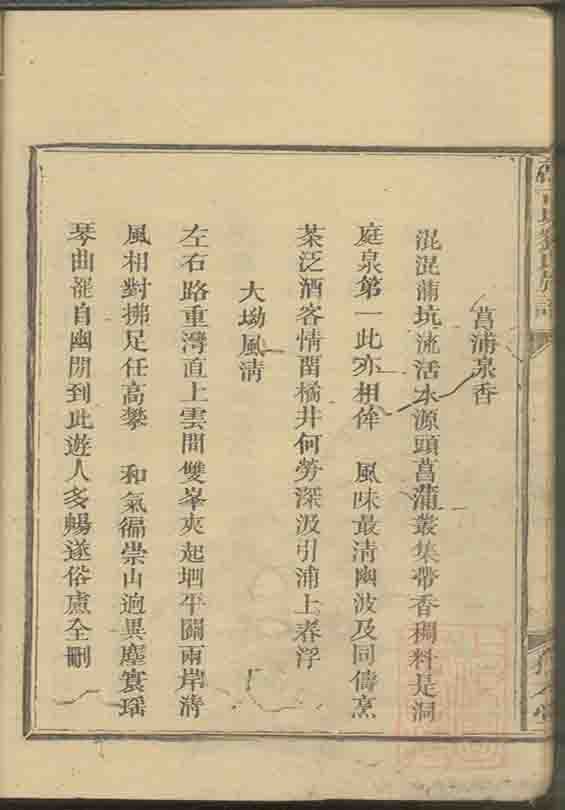 菖蒲泉香
混混蒲坑流活水源頭菖蒲叢集帶香稠料是洞
庭泉第一此亦相侔　風味最清幽波及同儔烹
茶泛酒客情留橘井何勞深汲引浦上春浮
大坳風清
左右路重灣直上雲間雙峯夾起坰平關兩岸清
風相對拂足任高攀　和氣徧崇山迥異塵寰瑶
琴曲罷自幽閒到此遊人多暢遂俗慮全刪